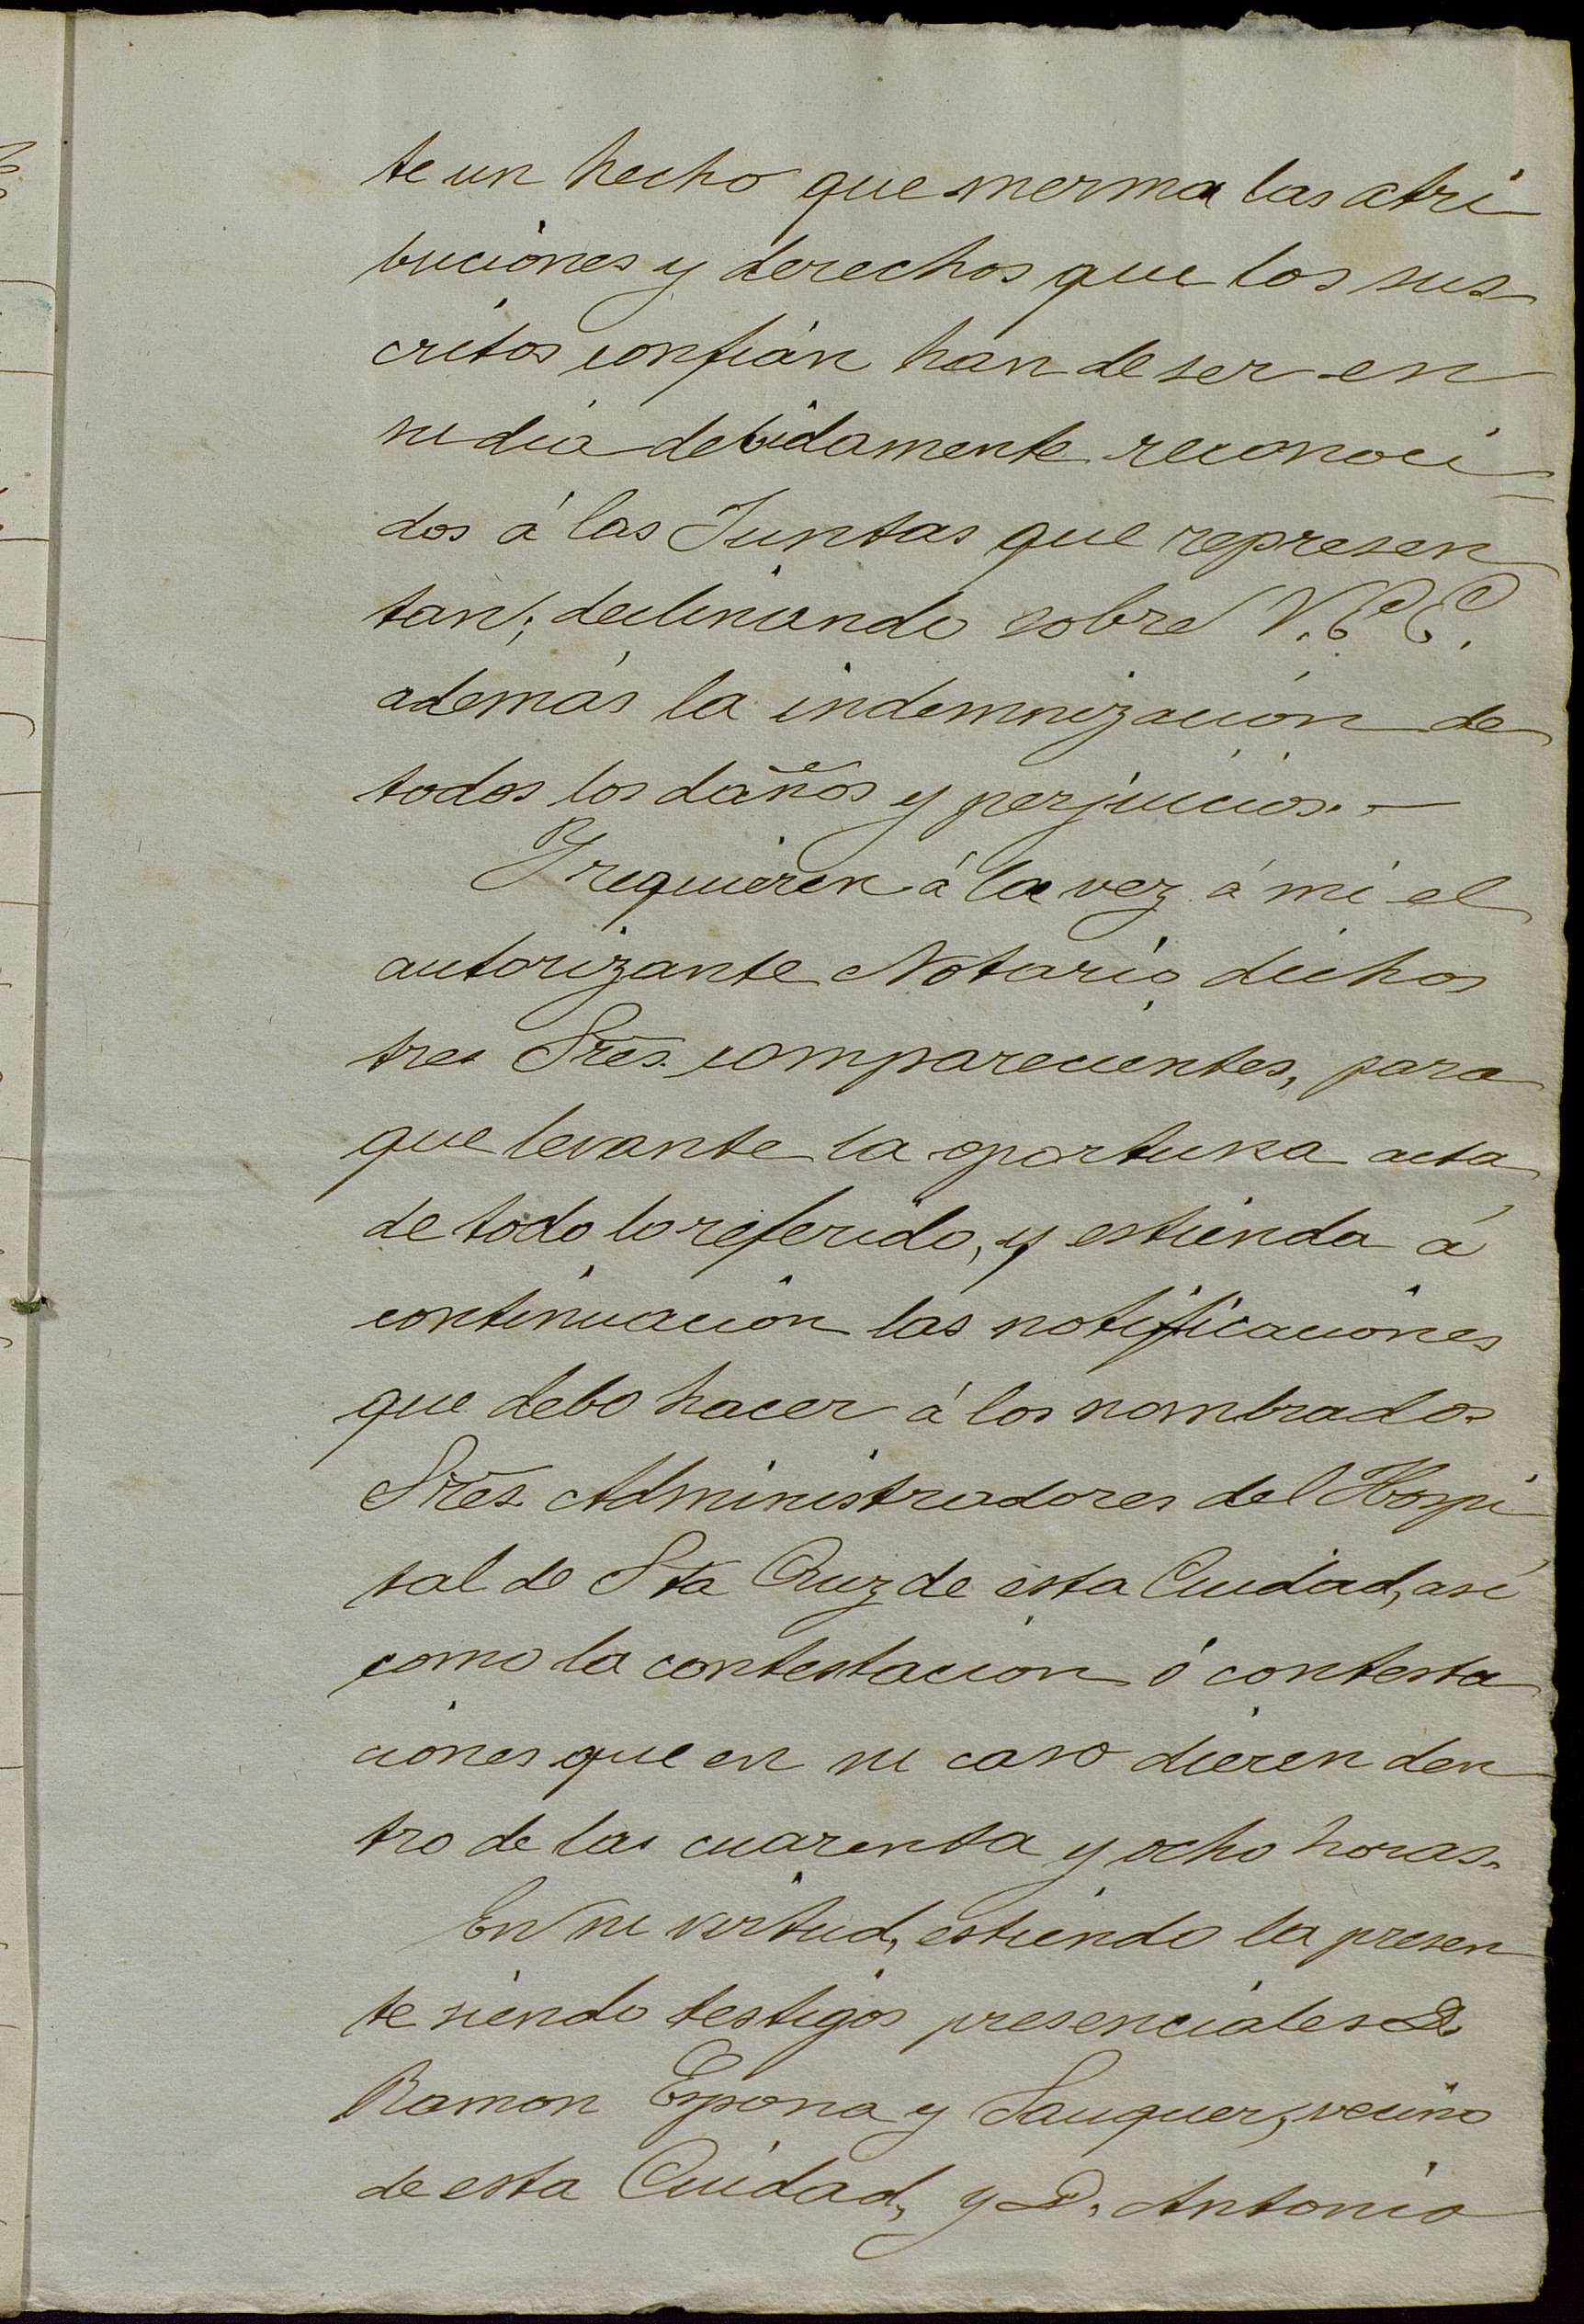 te un hecho que merma las atri
buciones y derechos que los sus
critos confían han de ser en
su día debidamente reconoci=
dos á las Juntas que represen
tan; declinando sobre V.E.E.
además la indemnización de
todos los daños y perjuicios.—
Y requieren á la vez á mi el
autorizante Notario dichos
tres Sres. comparecientes, para
que levante la oportuna acta
de todo lo referido, y estienda á
continuación las notificaciones
que debo hacer á los nombrados
Sres. Administradores del Hospi
tal de Sta Cruz de esta Ciudad, así
como la contestacion ó contesta
ciones que en su caso dieren den
tro de las cuarenta y ocho horas.
En su virtud, estiendo la presen
te siendo testigos presenciales D.
Ramon Espona y Sauquer, vecino
de esta Ciudad, y D. Antonio